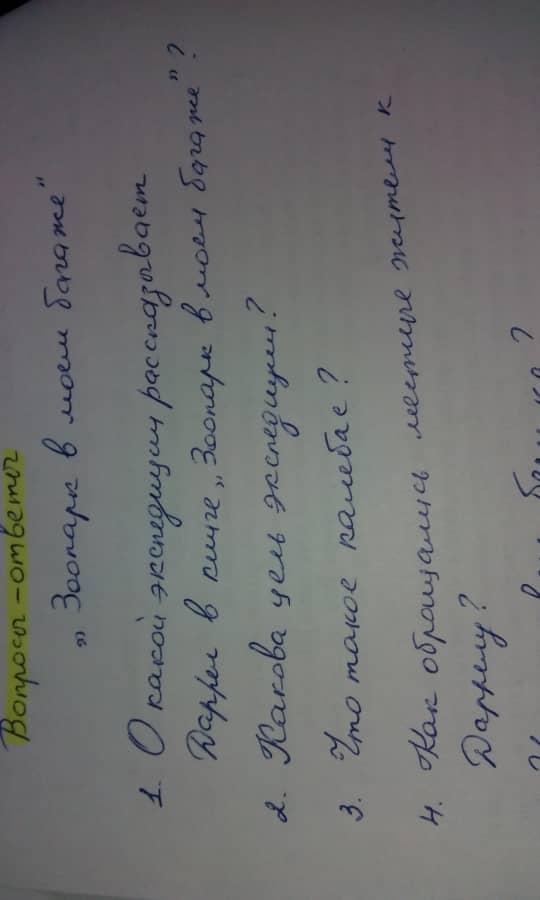 Вопросы - ответы
„Зоопарк в моем багаже"
1. О какой экспедиции рассказывает
Даррел в книге „Зоопарк в моем багаже"?
2. Какова цель экспедиции?
3. Что такое калебас?
4. Как обращались местные жители к
Даррелу?